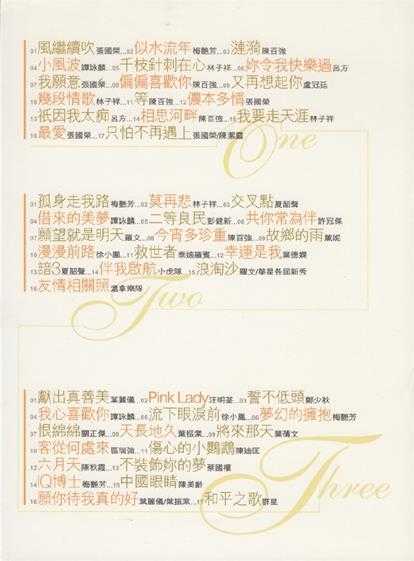 01 風繼續吹 張國榮...02 似水流年 梅艷芳...03 漣漪 陳百強
04 小風波 譚詠麟...05 千枝針刺在心 林子祥...06 妳令我快樂過 呂方
07 我願意 張國榮...08 偏偏喜歡你 陳百強...09 又再想起你 盧冠廷
10 幾段情散 林子祥...11 等 陳百強...12 儂本多情 張國榮
13 祇因我太痴 呂方...14 相思河畔 陳百強...15 我要走天涯 林子祥
16 最愛 張國榮...17 只怕不再遇上 張國榮/陳潔靈
One
01 孤身走我路 梅艷芳...02 莫再悲 林子祥...03 交叉點 夏韶聲
04 借來的美夢 譚詠麟...05 二等良民 彭健新...06 共你常為伴 許冠傑
07 願望就是明天 羅文...08 今宵多珍重 陳百強...09 故鄉的雨
10 漫漫前路 徐小鳳...11 救世者 泰迪羅賓...12 幸運是我 葉德嫻
13 諳3 夏韶聲...14 伴我啟航 小虎隊...15 浪淘沙 羅文/華星各屆新秀
16 友情相關照 溫拿樂隊
Two
01 獻出真善美 葉麗儀...02 Pink Lady 汪明荃...03 誓不低頭 鄭少秋
04 我心喜歡你 譚詠麟...05 流下眼淚前 徐小鳳...06 夢幻的擁抱 梅艷芳
07 恨綿綿 關正傑...08 天長地久 葉振棠...09 將來那天 葉蒨文
10 客從何處來 區瑞強...11 傷心的小鸚鵡 陳迪匡
12 六月天 陳秋霞...13 不裝飾妳的夢 蔡國權
14 IQ博士 梅艷芳...15 中國眼睛 陳美齡
16 願你待我真的好 葉麗儀/葉振棠...17 和平之歌 群星
Three